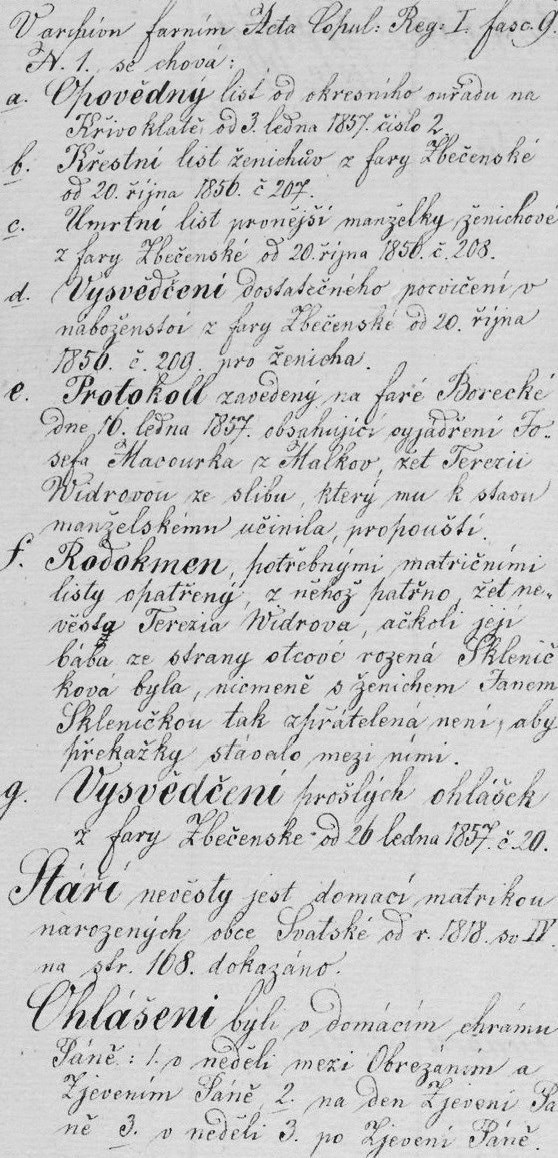 V archivu farním Acta Copul: Reg: I. fasc. 9.
N. 1., se chová:
a. Opovědný list od okresního ouřadu na
Křivoklatě od 3. ledna 1857. číslo 2.
b. Křestní list ženichův z fary Zbečenské
od 20. října 1856. č 207.
c. Umrtní list prvnější manželky ženichové
z fary Zbečenské od 20. října 1856. č. 208.
d. Vysvědčení dostatečného pocvičení v
naboženstoí z fary Zbečenské od 20. října
1856. č. 209. pro ženicha.
e. Protokoll zavedený na faře Borecké
dne 16. ledna 1857. obsahující vyjadření Jo-
sefa Macourka z Malkov, žet Terezii
Widrovou ze slibu, který mu k stavu
manželskému učinila, propouští.
f. Rodokmen, potřebnými matričními
listy opatřený, z něhož patřno, žet ne-
věsta Terezia Widrova, ačkoli její
bába ze strany otcové rozená Sklenič
ková byla, nicmeně s ženichem Janem
Skleničkou tak zpřátelená není, aby
překažky stávalo mezi nimi.
g. Vysvědčení prošlých ohlášek
z fary Zbečenské od 26 ledna 1857. č. 20.
Stáří nevěsty jest domací matrikou
narozených obce Svatské od r. 1818. sv IV.
na str. 168. dokazáno.
Ohlášeni byli v domácím chrámu
Páně: 1. v neděli mezi Obřezáním a
Zjevením Páně, 2. na den Zjevení Pá
ně 3. v neděli 3. po Zjevení Páně.